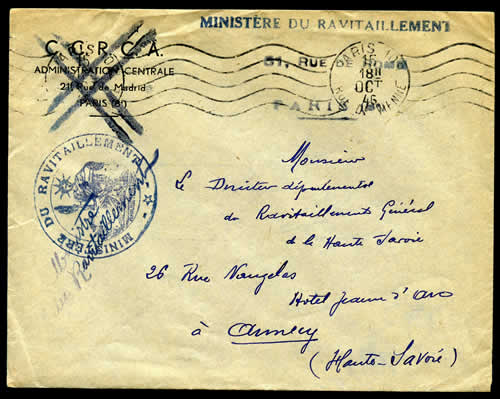 MINISTÈRE DU RAVITAILLEMENT
C. C. R. C. A.
ADMINISTRATION CENTRALE
211 Rue de Madrid
PARIS (8e)
51, RUE
PARIS
PARIS
18H
OCT
46
MINISTÈRE DU RAVITAILLEMENT
du Ravitaillement
Monsieur
Le Directeur départemental
du Ravitaillement Général
de la Haute Savoie
26 Rue Vaugelas
Hotel Jeanne d'Arc
à Annecy
(Haute-Savoie)